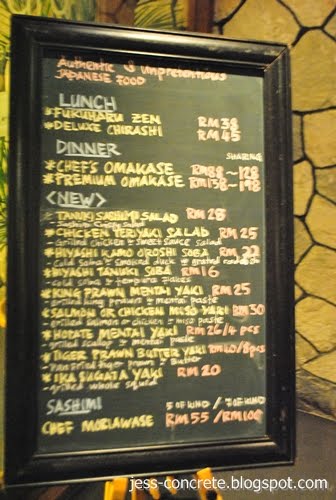 Authentic & Unpretentious
JAPANESE FOOD
LUNCH
*FUKUHARU ZEN RM 38
*DELUXE CHIRASHI RM 45
DINNER SHARING
*CHEF'S OMAKASE RM88~128
*PREMIUM OMAKASE RM158~198
<NEW>
*TANUKI SASHIMI SALAD RM 28
*CHICKEN TERIYAKI SALAD RM 25
- Grilled chicken & sweet sauce salad
*HIYASHI KAMO OROSHI SOBA RM 22
- Cold soba & smoked duck & grated
*HIYASHI TANUKI SOBA RM 16
- cold soba & tempura flakes
*KING PRAWN MENTAI YAKI RM 25
- grilled king prawns & mentai paste
*SALMON OR CHICKEN MISO YAKI RM 30
- grilled salmon or chicken & miso paste
*HOTATE MENTAI YAKI RM 26/4 pcs
- grilled scallop & mentai paste
*TIGER PRAWN BUTTER YAKI RM40/8pcs
- Pan fried tiger prawn & butter
*IKA SUGATA YAKI RM 20
- grilled whole squid
SASHIMI 5 OF KIND / 7 OF KIND
CHEF MORIAWASE RM 55 / RM100
jess-concrete.blogspot.com